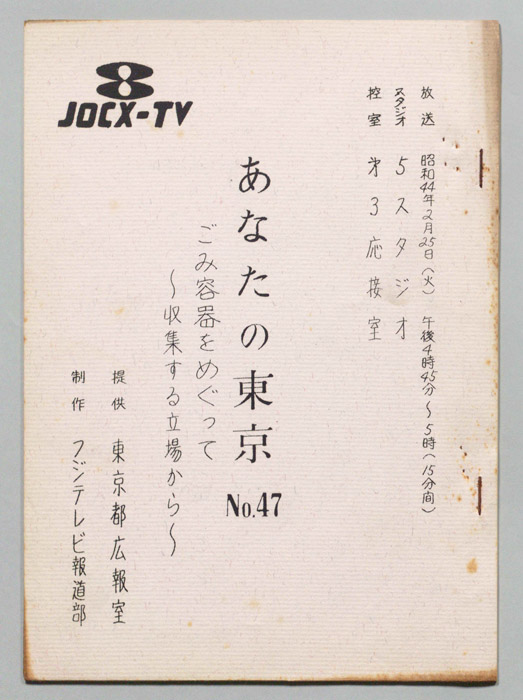 放送 昭和44年2月25日(火) 午後4時45分～5時(15分間)
スタジオ 5スタジオ
控室 第3応接室
8
JOCX-TV
あなたの東京 No.47
ごみ容器をめぐって
～収集する立場から～
提供 東京都広報室
制作 フジテレビ報道部